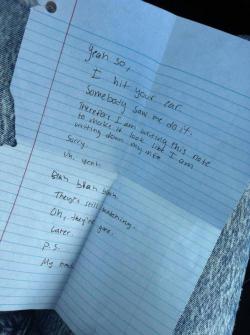 Yeah so,
I hit your car.
Somebody saw me do it.
Therefore I am writing this note
to make it look like I am
writing down my info.
Sorry.
Uh. Yeah.
Blah blah blah.
They're still watching.
Oh, they're gone.
Later.
P.S.
My